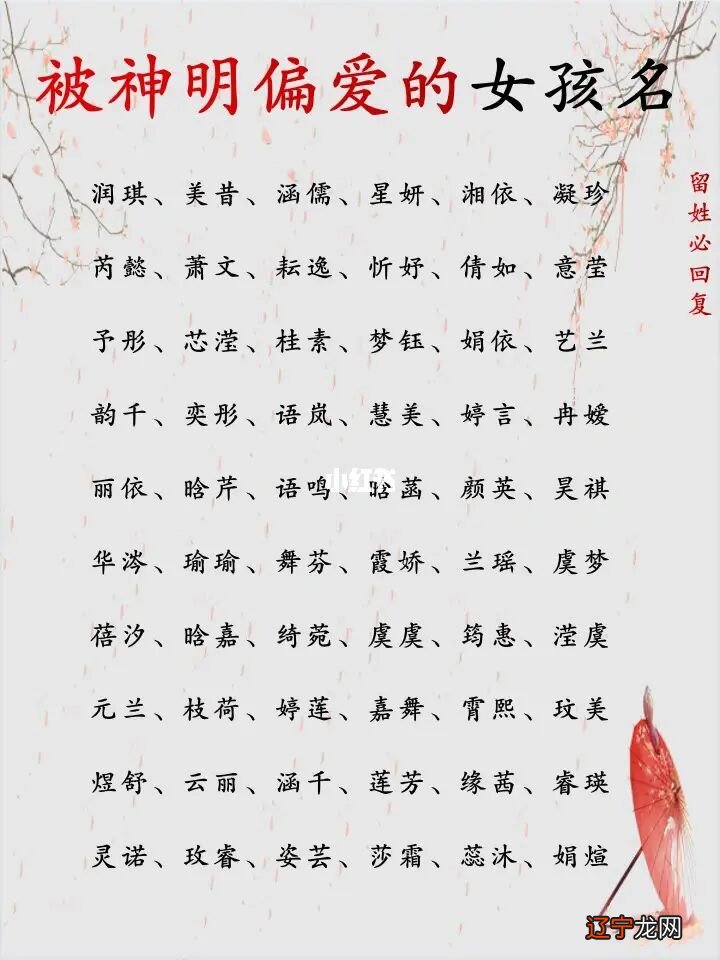 被神明偏爱的女孩名
留姓必回复
润琪、美昔、涵儒、星妍、湘依、凝珍
芮懿、萧文、耘逸、忻妤、倩如、意莹
予彤、芯滢、桂素、梦钰、娟依、艺兰
韵千、奕彤、语岚、慧美、婷言、冉嫒
丽依、晗芹、语鸣、晗菡、颜英、昊祺
华涔、瑜瑜、舞芬、霞娇、兰瑶、虞梦
蓓汐、晗嘉、绮菀、虞虞、筠惠、滢虞
元兰、枝荷、婷莲、嘉舞、霄熙、玟美
煜舒、云丽、涵千、莲芳、缘茜、睿瑛
灵诺、玫睿、姿芸、莎霜、蕊沐、娟煊
小红书
辽宁龙网